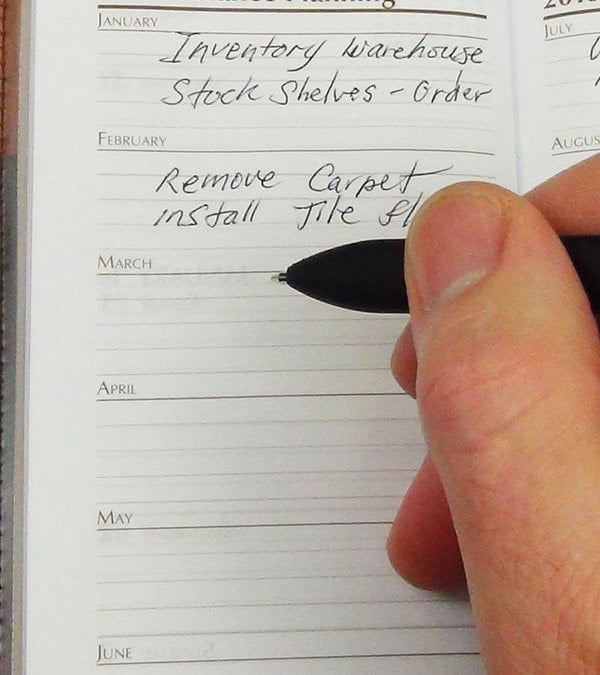 Planning
JANUARY
Inventory Warehouse
Stock Shelves - Order
FEBRUARY
Remove Carpet
install Tile
MARCH
APRIL
MAY
JUNE
JULY